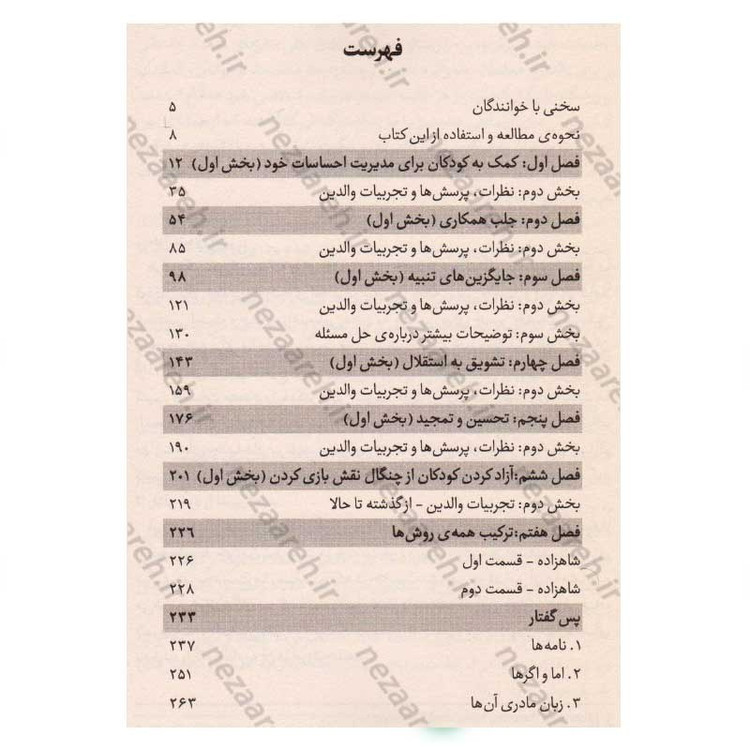 فهرست
سخنی با خوانندگان ۵
نحوه‌ی مطالعه و استفاده از این کتاب ۸
فصل اول: کمک به کودکان برای مدیریت احساسات خود (بخش اول) ۱۲
بخش دوم: نظرات، پرسش‌ها و تجربیات والدین ۳۵
فصل دوم: جلب همکاری (بخش اول) ۵۴
بخش دوم: نظرات، پرسش‌ها و تجربیات والدین ۸۵
فصل سوم: جایگزین‌های تنبیه (بخش اول) ۹۸
بخش دوم: نظرات، پرسش‌ها و تجربیات والدین ۱۲۱
بخش سوم: توضیحات بیشتر درباره‌ی حل مسئله ۱۳۰
فصل چهارم: تشویق به استقلال (بخش اول) ۱۴۳
بخش دوم: نظرات، پرسش‌ها و تجربیات والدین ۱۵۹
فصل پنجم: تحسین و تمجید (بخش اول) ۱۷۶
بخش دوم: نظرات، پرسش‌ها و تجربیات والدین ۱۹۰
فصل ششم: آزاد کردن کودکان از چنگال نقش بازی کردن (بخش اول) ۲۰۱
بخش دوم: تجربیات والدین - از گذشته تا حالا ۲۱۹
فصل هفتم: ترکیب همه‌ی روش‌ها ۲۲۶
شاهزاده - قسمت اول ۲۲۶
شاهزاده - قسمت دوم ۲۲۸
پس گفتار ۲۳۳
۱. نامه‌ها ۲۳۷
۲. اما و اگرها ۲۵۱
۳. زبان مادری آن‌ها ۲۶۳
nezaareh.ir